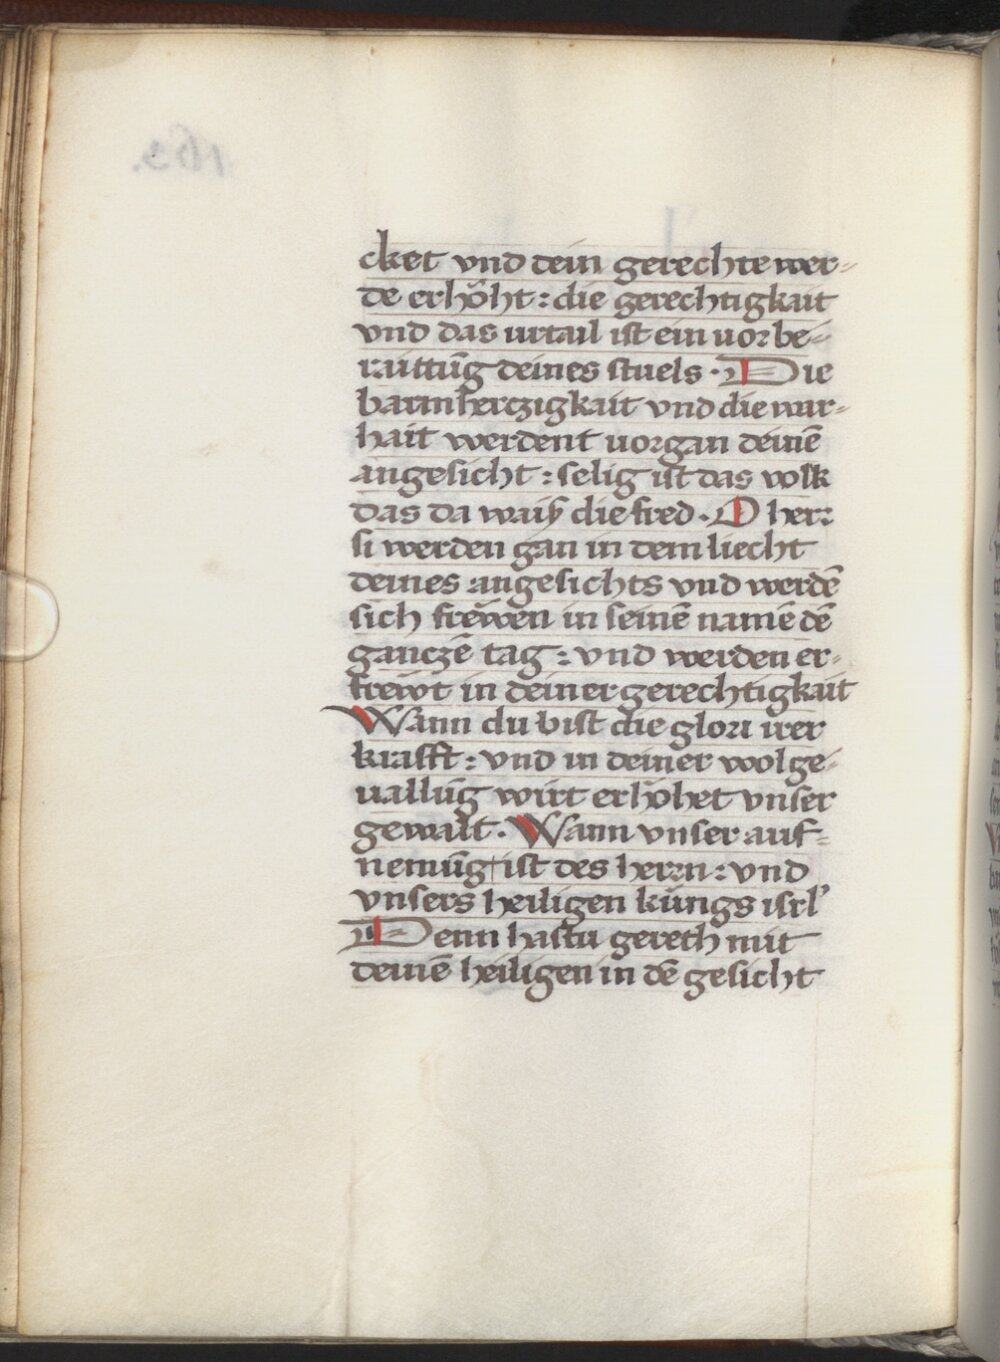 cket vnd dein gerechte wer-
de erhöht : die gerechtigkait
vnd das urtail ist ein uorbe-
raittūg deines stuels · Die
barmherczigkait vnd die war-
hait werdent uorgan deinē
angesicht : selig ist das volk
das da waiß die fred · O herr
si werden gan in dem liecht
deines angesichts vnd werdē
sich frewen in seinē namē dē
ganczē tag : vnd werden er-
frewt in deiner gerechtigkait
Wann du bist die glori irer
krafft : vnd in deiner wolge-
uallūg wirt erhöhet vnser
gewalt · Wann vnser auf-
nemūg ist des herrn : vnd
vnsers heiligen kůngs isrl'
Denn hastu gereth mit
deinē heiligen in dē gesicht